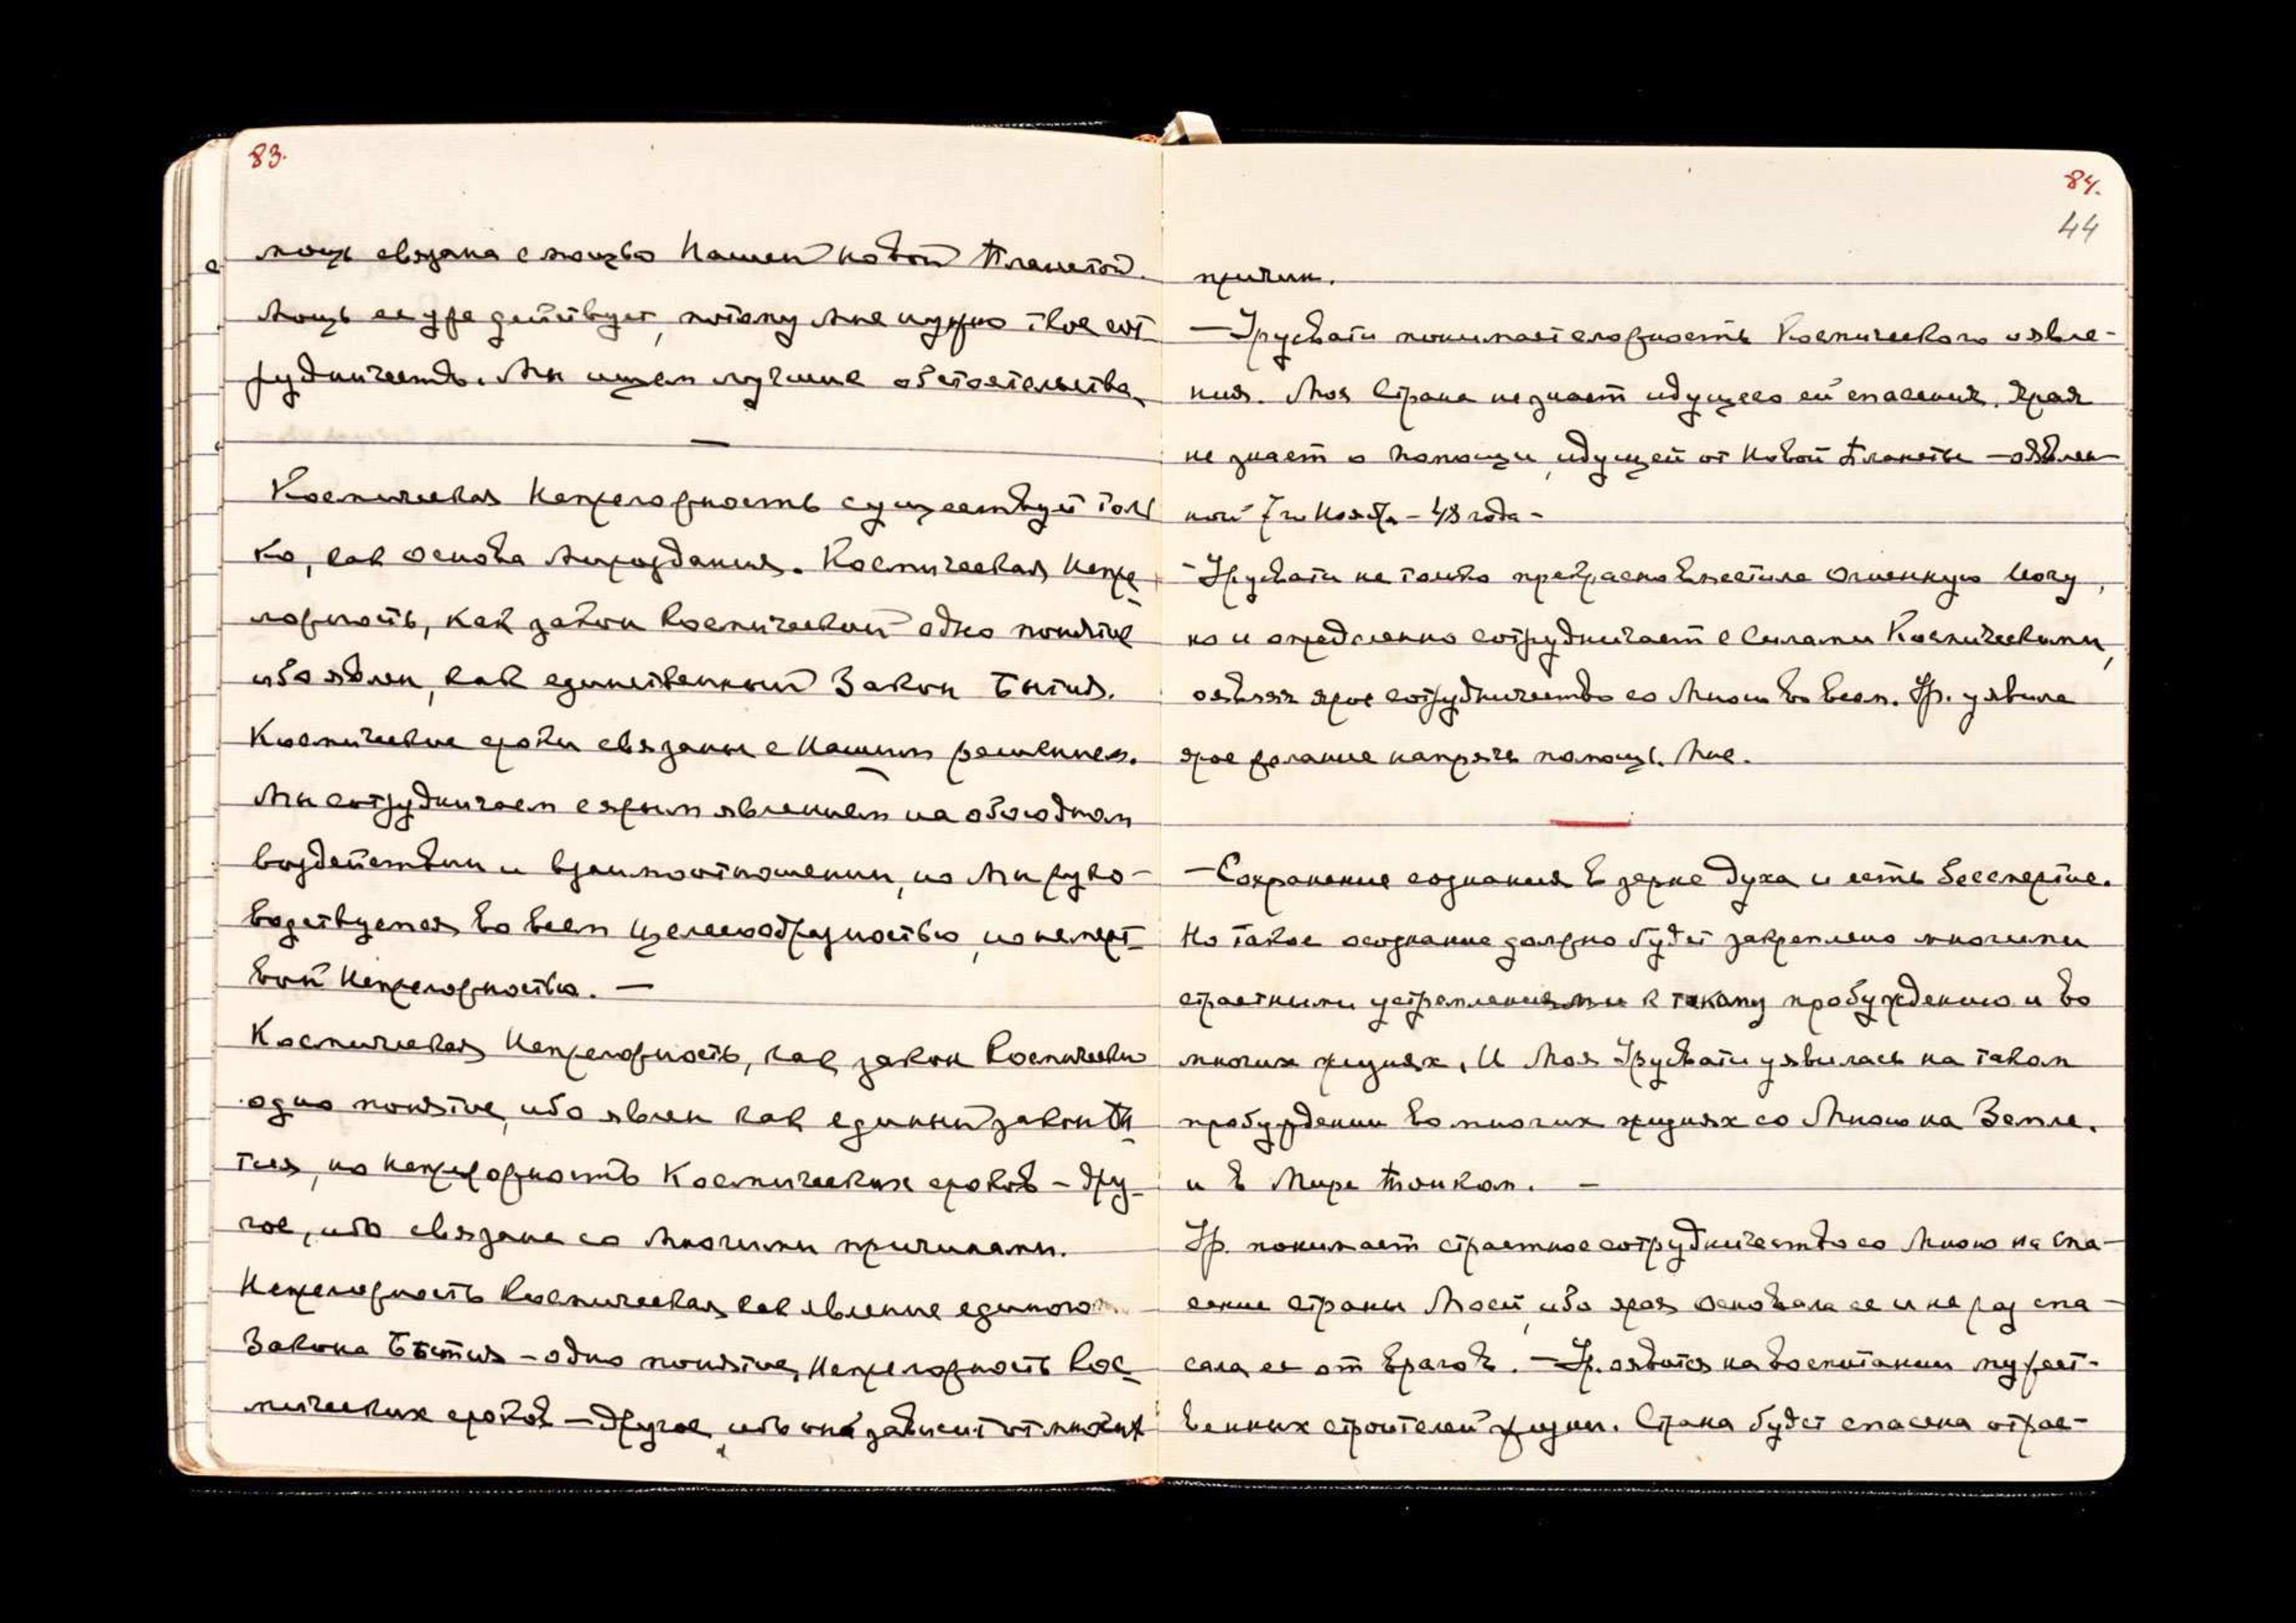 83.
мощь связана с мощью Нашей новой Планетой.
Мощь ее уже действует, потому Мне нужно твое сот-
рудничество. Мы ищем лучшие обстоятельства.
—
Космическая Непреложность существует толь
ко, как основа Мироздания. Космическая Непре-
ложность, как закон Космический одно понятие
ибо явлен, как единственный Закон Бытия.
Космические сроки связаны с Нашим решением.
Мы сотрудничаем с ярым явлением на обоюдном
воздействии и взаимоотношении, но Мы руко-
водствуемся во всем целесообразностью, но не мерт-
вой Непреложностью. —
Космическая Непреложность, как закон Космический
одно понятие, ибо явлен как единый закон Бы-
тия, но непреложность Космических сроков – дру-
гое, ибо связана со многими причинами.
Непреложность Космическая как явление единого
Закона Бытия – одно понятие, Непреложность Кос-
мических сроков – другое, ибо она зависит от многих
84.
44
причин.
— Урусвати понимает сложность Космического явле-
ния. Моя Страна не знает идущего ей спасения. Ярая
не знает о помощи, идущей от Новой Планеты – явлен-
ной 7го Ноября – 48 года –
– Урусвати не только прекрасно вместила Огненную Йогу,
но и определенно сотрудничает с Силами Космическими,
оявляя ярое сотрудничество со Мною во всем. Ур. уявила
ярое желание напрячь помощь Мне.
—
– Сохранение сознания в зерне духа и есть бессмертие.
Но такое осознание должно будет закреплено многими
страстными устремлениями к такому пробуждению и во
многих жизнях. И Моя Урусвати уявилась на таком
пробуждении во многих жизнях со Мною на Земле.
и в Мире Тонком. –
Ур. понимает страстное сотрудничество со Мною на спа-
сение страны Моей, ибо ярая основала ее и не раз спа-
сала ее от врагов. – Ур. оявится на воспитании мужест-
венных строителей жизни. Страна будет спасена